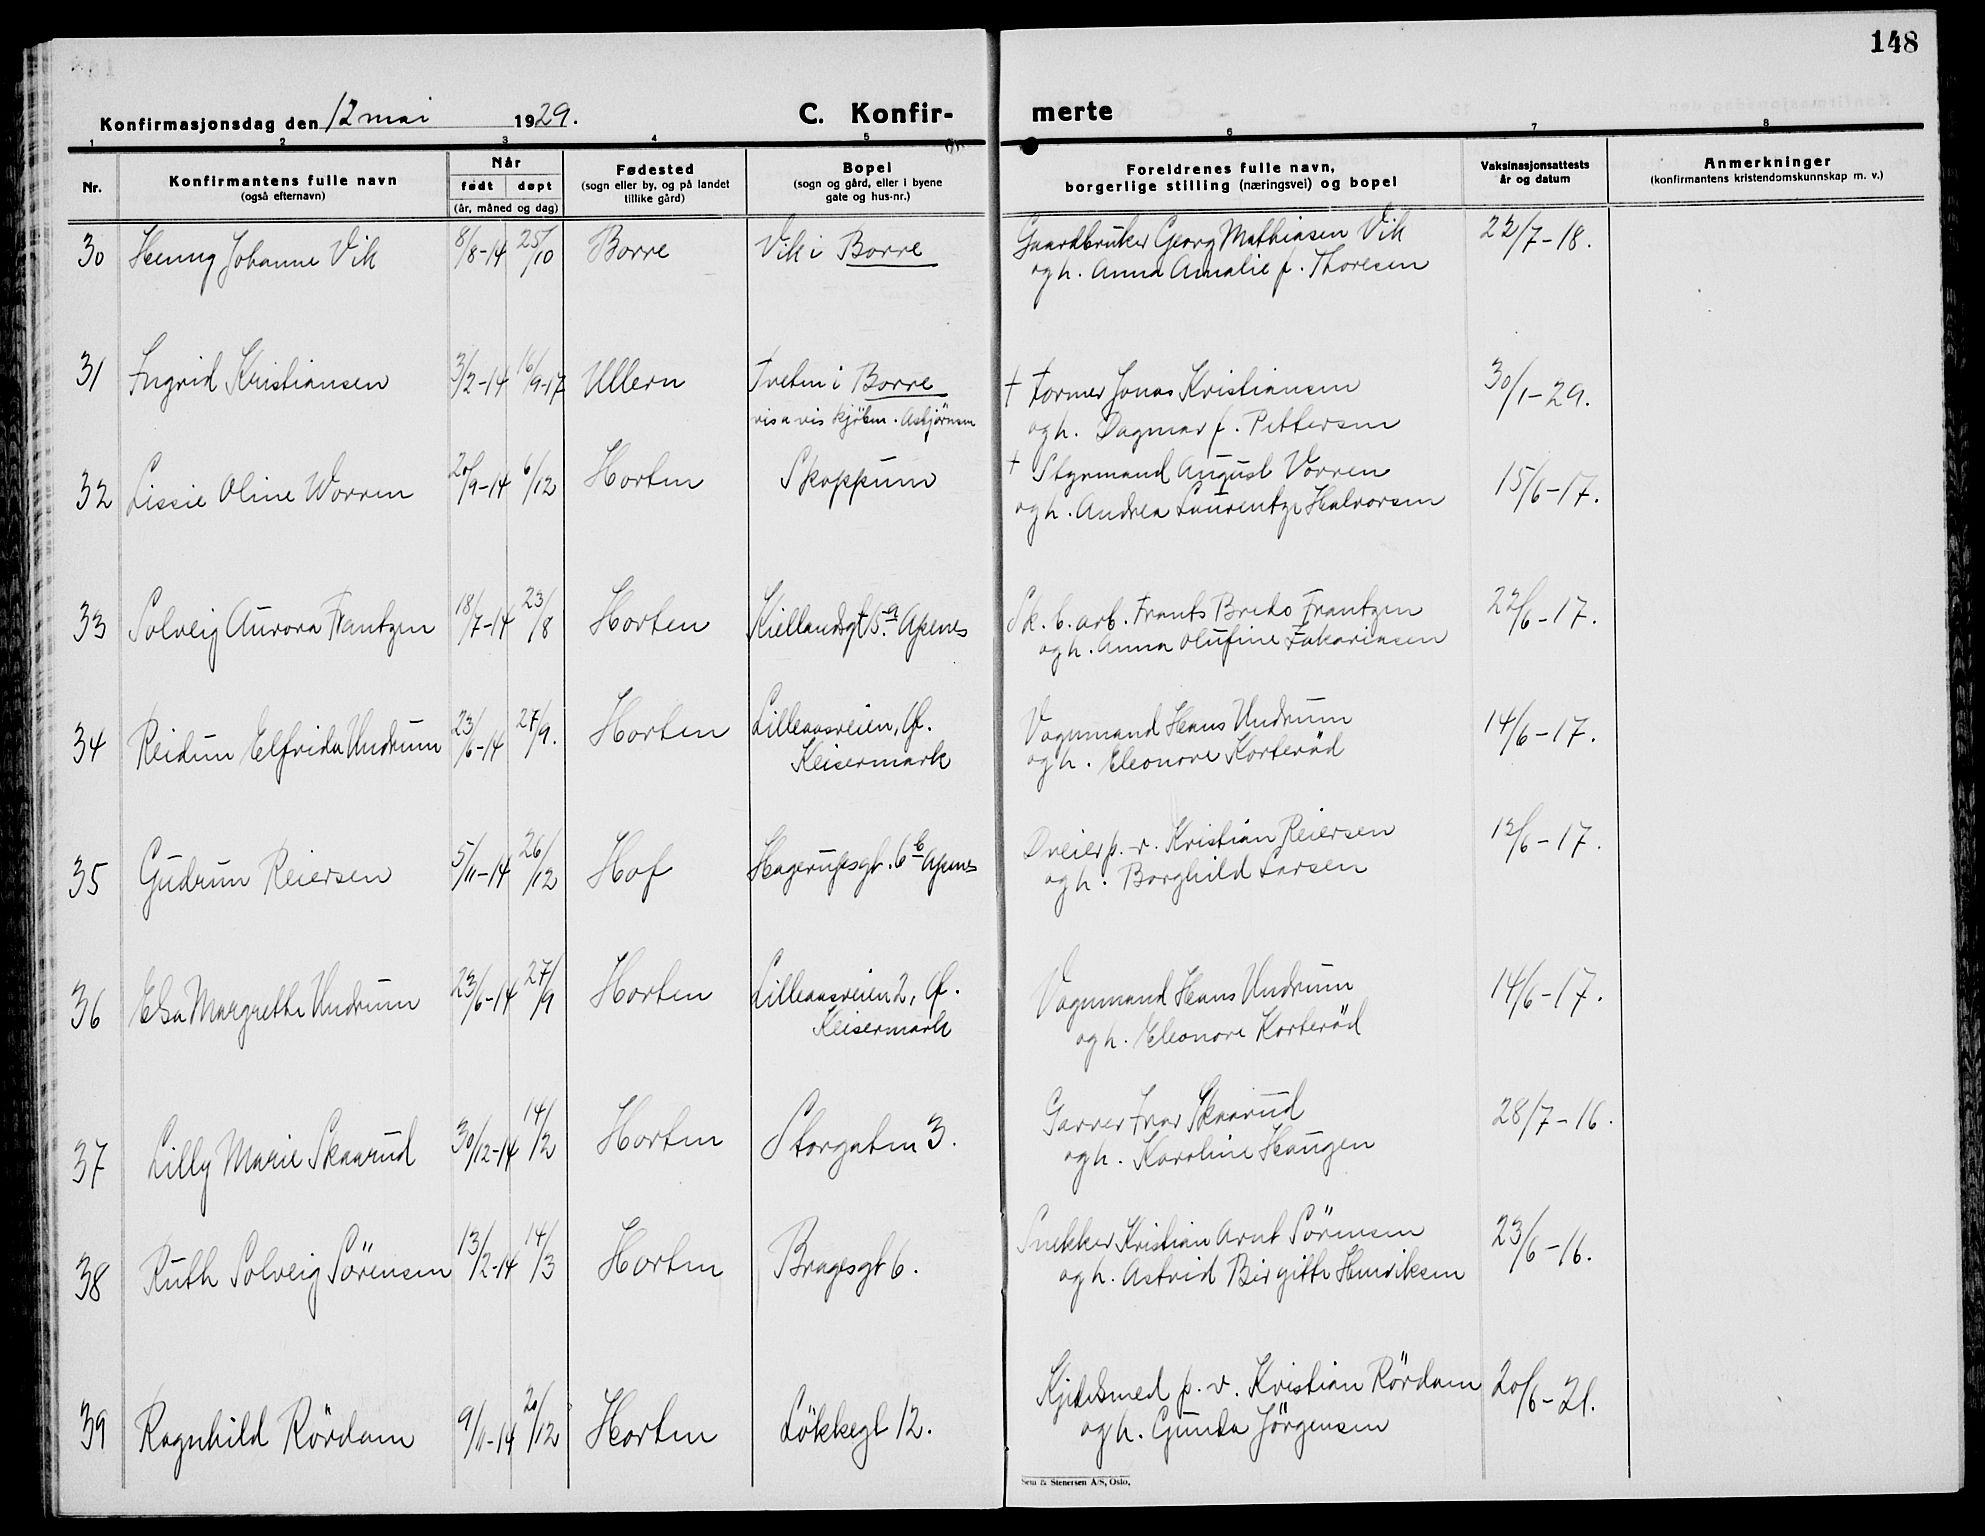 148
Konfirmasjonsdag den 12 mai 1929.
C. Konfir-
merte
1 2 3 4 5 6 7 8
Nr.
Konfirmantens fulle navn
(også efternavn)
Når
født døpt
(år, måned og dag)
Fødested
(sogn eller by, og på landet
tillike gård)
Bopel
(sogn og gård, eller i byene
gate og hus-nr.)
Foreldrenes fulle navn,
borgerlige stilling (næringsvei) og bopel
Vaksinasjonsattests
år og datum
Anmerkninger
(konfirmantens kristendomskunnskap m. v.)
30 Henny Johanne Vik 8/8-14 25/10 Borre Vik i Borre Gaardbruker Georg Mathiasen Vik 22/7-18.
og h. Anna Amalie f. Thoresen
31 Ingrid Kristiansen 3/2-14 16/9-17 Ullern Tveten i Borre † Former Jonas Kristiansen 30/1-29.
vis a vis kjøbm. Asbjörnsen og h. Dagmar f. Pettersen
32 Lissie Oline Worren 20/9-14 6/12 Horten Skoppum † Styrmand August Vorren 15/6-17.
og h. Andrea Laurentze Halvorsen
33 Solveig Aurora Frantzen 18/7-14 23/8 Horten Kiellandsgt 15a Apenes Sk. b. arb. Frants Bredo Frantzen 22/6-17.
og h. Anna Olufine Zakariasen
34 Reidun Elfrida Undrum 23/6-14 27/9. Horten Lilleaasveien, Vognmand Hans Undrum 14/6-17.
Keisermark og h. Eleonore Korteröd
35 Gudrun Reiersen 5/11-14 26/12 Hof Hagerupsgt. 6b Apenes Dreier p. v. Kristian Reiersen 12/6-17.
og h. Borghild Larsen
36 Elsa Margrethe Undrum 23/6-14 27/9 Horten Lilleaasveien 2, Vognmand Hans Undrum 14/6-17.
Keisermark og h. Eleonore Korteröd
37 Lilly Marie Skaarud 30/12-14 14/2 Horten Storgaten 3. Garver Ivar Skaarud 28/7-16.
og h. Karoline Haugen
38 Ruth Solveig Sörensen 13/2-14 14/3 Horten Bragesgt 6. Snekker Kristian Arnt Sörensen 23/6-16.
og h. Astrid Birgitte Henriksen
39 Ragnhild Rördam 9/11-14 20/12 Horten Lökkegt 12. Kjelsmed p. v. Kristian Rördam 20/6-21.
og h. Gunda Jörgensen
Sem & Stenersen A/S, Oslo.